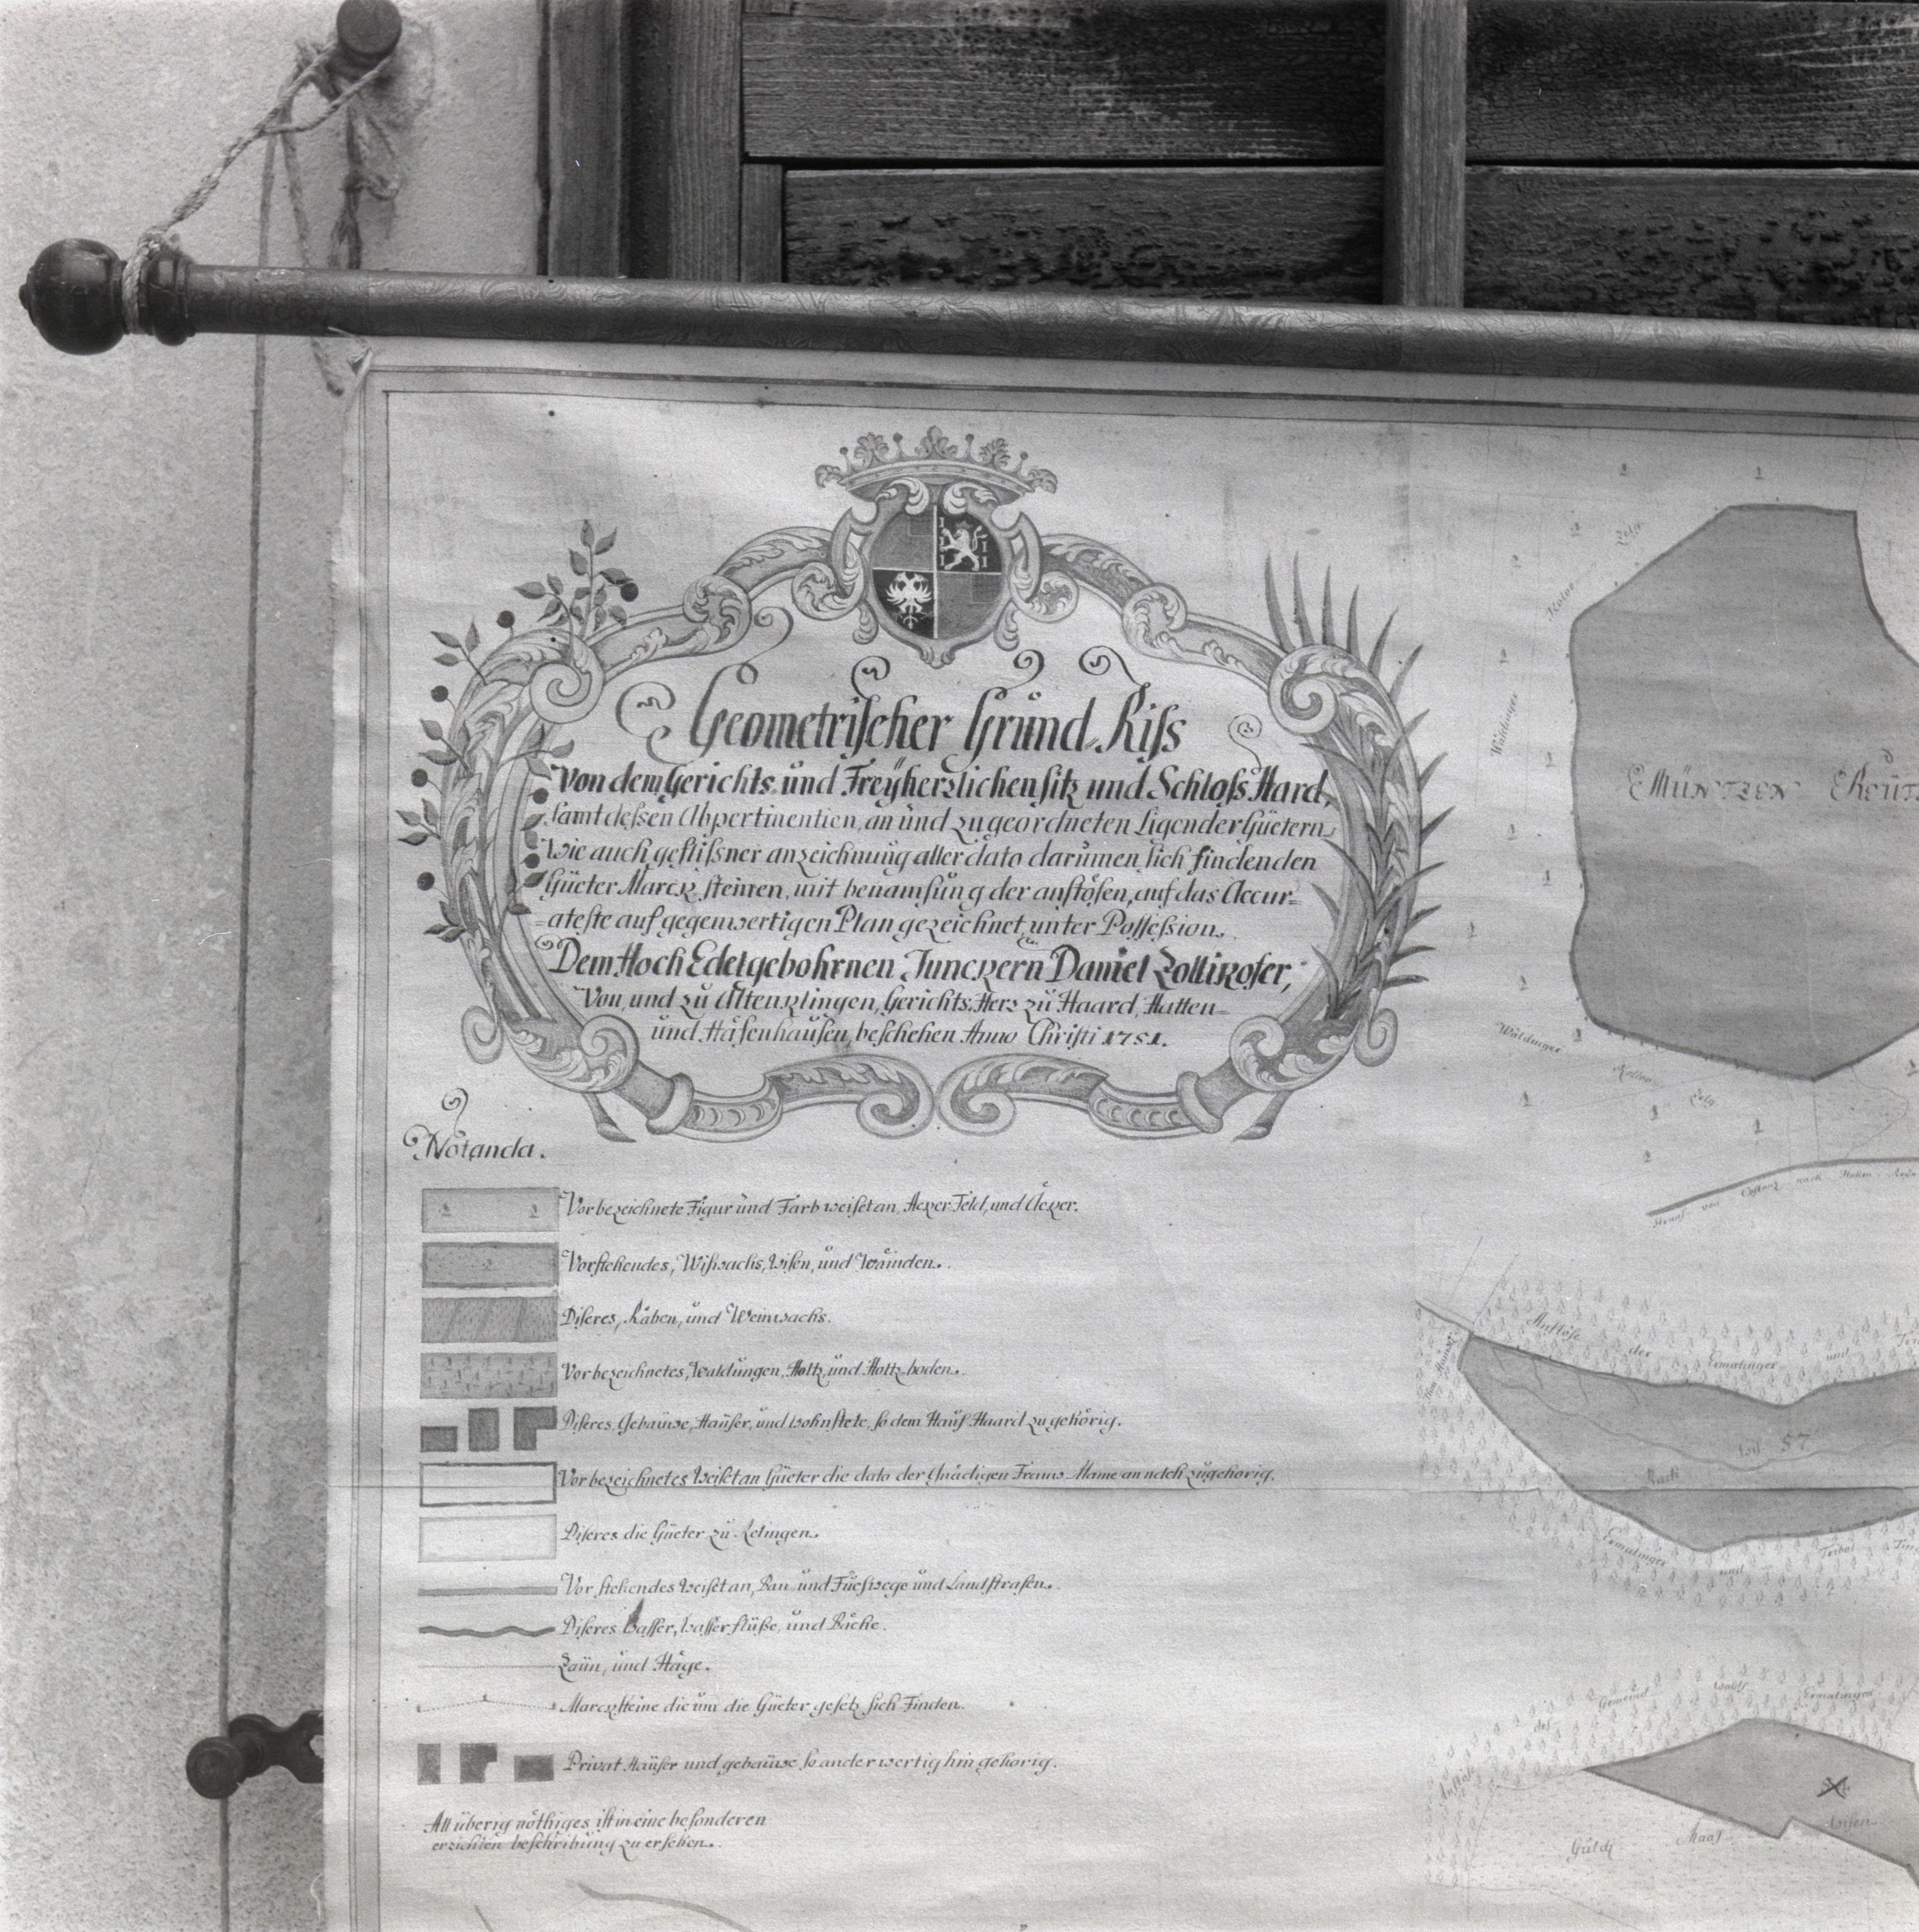 Geometrischer Grund-Riss
Von dem Gerichts und Freyherzlichen sitz und Schloss Hard,
samt dessen Abpertinentien, an und zu geordneten Ligender Güetern,
Wie auch geflissner anzeichnung aller dato darumen sich findenden
Güeter Marck steinen, mit benamsung der anstösen, auf das Accur=
=ateste auf gegenwertigen Plan gezeichnet, unter Possession.
Dem Hoch Edelgebohrnen Junckern Daniel Zollikofer,
Von, und zu Altenklingen, Gerichts Herr zu Haard, Hatten=
und Häsenhausen, beschehen Anno Christi 1751.
Notanda.
Vorbezeichnete Figur und Farb weiset an, Acker Feld, und Äcker.
Vorstehendes, Wiswachs, Wisen, und Wäinden.
Diseres, Räben, und Weinwachs.
Vorbezeichnetes, Waldungen, Holtz, und Holtz boden.
Diseres, Gebäuwe, Häuser, und wohnstete, so dem Haus Haard zu gehörig.
Vorbezeichnetes Weiset an Güeter die dato der Gnädigen Frauw Mame an noch zugehörig.
Diseres die Güeter zu Relingen.
Vor stehendes Weiset an, Ban und Fueswege und Landstrasen.
Diseres Wasser, Wasser flüsse, und Bäche.
Zäun, und Häge.
Marcksteine die um die Güeter gesetz sich Finden.
Privat Häuser und gebäuwe so anderwertig hin gehörig.
All überig nöthiges ist in eine besonderen
erzichten beschribung zu ersehen.
Zelg
Waldinger
MÜNTZEN REUT
Waldinger
Zelg
Strass von Costanz nach
Anstöse der Ermatinger und
57
Ermatinger und
Anstöse des Gemeind Ermatingen
Wisen